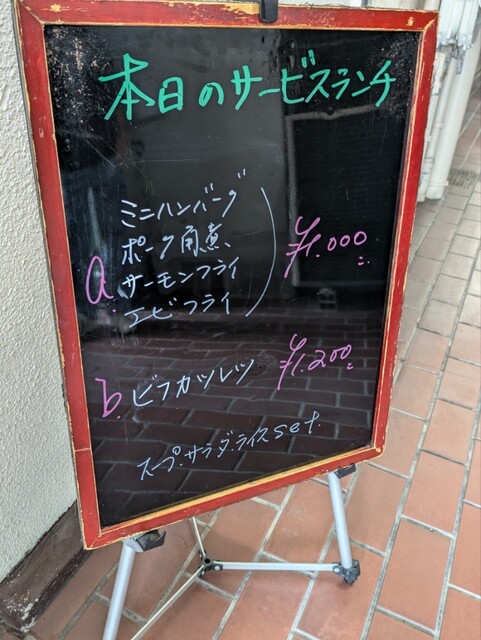 本日のサービスランチ
ミニハンバーグ
ポーク角煮、
a. サーモンフライ ¥1.000
エビフライ
b. ビフカツレツ ¥1.200
スープ.サラダ.ライスset.